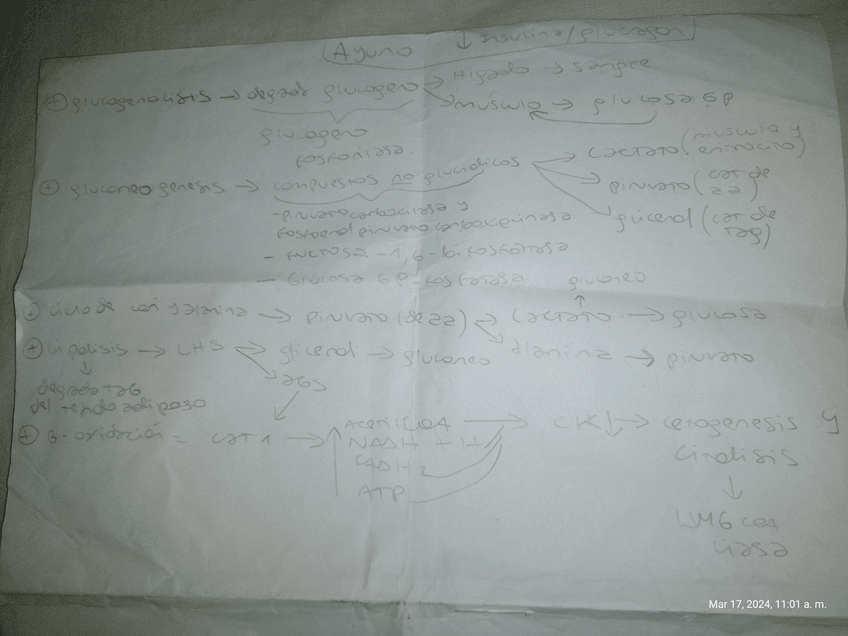 Ayuno ↓ Insulina/glucagon
⊕ glucogenolisis → degrad glucogeno → Higado → sangre
→ músculo → glucosa 6P
glucogeno
fosforilasa.
⊕ gluconeogenesis → compuestos no glucidicos → Lactato (musculo y
eritrocito)
→ piruvato (cat de
aa)
→ glicerol (cat de
TAG)
- piruvato carboxilasa y
fosfoenol piruvato carboxiquinasa
- fructosa -1,6-bifosfatasa
- Glucosa 6P-fosfatasa
gluconeo
↑
⊕ Ciclo de cori y alanina → piruvato (de aa) → Lactato → glucosa
→ Alanina → piruvato
⊕ Lipolisis → LHS → glicerol → gluconeo
↓ → AGs
degrada TAG
del tejido adiposo
⊕ B-oxidación = CAT 1 → ↑ Acetil CoA → CK↓ → cetogenesis y
NADH + H
Citolisis
FADH2
ATP
↓
HMG COA
liasa
Mar 17, 2024, 11:01 a. m.